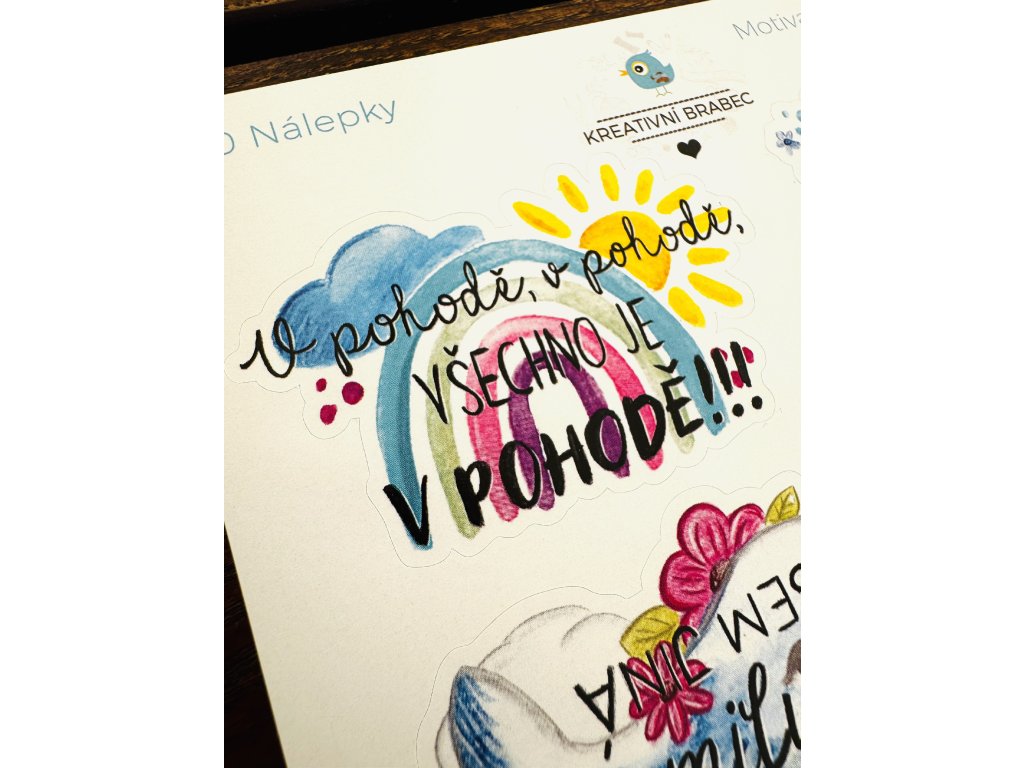 Nálepky
KREATIVNÍ BRABEC
V pohodě, v pohodě,
VŠECHNO JE
V POHODĚ!!!
JINÁ